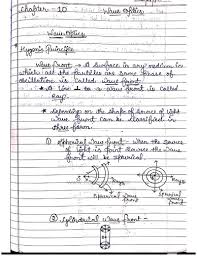 Chapter - 10
Wave Optics
Wave Optics
Hygen's Principle
Wave front → A surface in any medium in
which all the particles are same phase of
oscillation is called wave front.
* A line ⊥ to a wave front is called
Ray.
* Depending on the shape of source of light
wave front can be classified in
three form
① Spherical wave front - When the source
of light is point source the wave
front will be spherical.
S
Rays
Rays
Spherical
wave front
Spherical
wave front
② Cylindrical wave front -